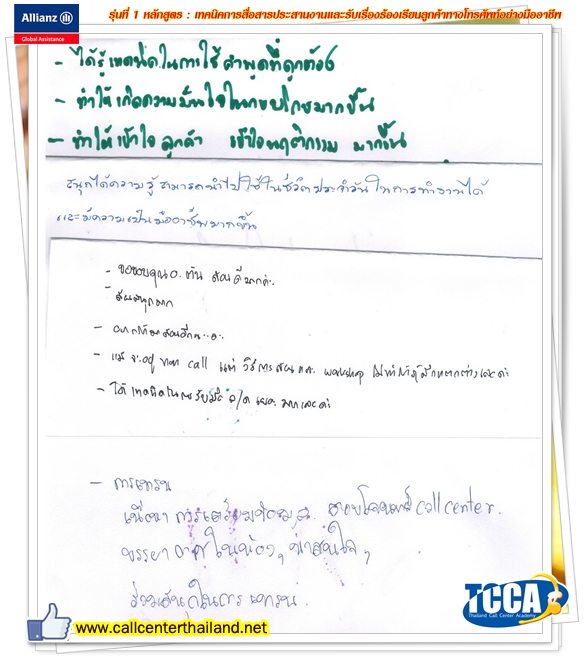 Allianz
Global Assistance
รุ่นที่ 1 หลักสูตร : เทคนิคการสื่อสารประสานงานและรับเรื่องร้องเรียนลูกค้าทางโทรศัพท์อย่างมืออาชีพ
- ได้รู้เทคนิคในการใช้คำพูดที่ถูกต้อง
- ทำให้เกิดความมั่นใจในการมากขึ้น
- ทำให้เข้าใจลูกค้า เข้าใจพฤติกรรม มากขึ้น
สนุกได้ความรู้ สามารถนำไปใช้ในชีวิตประจำวัน ในการทำงานได้
และมีความเป็นมืออาชีพมากขึ้น
- ขอขอบคุณ อ. ต้น สอนดีมากค่ะ
สอนสนุกมาก
- อยากให้มาสอนอีก
- แม้จะอยู่ call แต่วิธีการสอน workshop ไม่ทำให้รู้สึกแตกต่างเลยค่ะ
- ได้เทคนิคในการรับมือ มากเลยค่ะ
- การเทรน
เนื้อหา การเตรียมข้อมูล ตอบโจทย์ call center.
บรรยากาศในห้อง, น่าสนใจ,
ร่วมสนุกในการเทรน.
www.callcenterthailand.net
TCCA
Thailand Call Center Academy